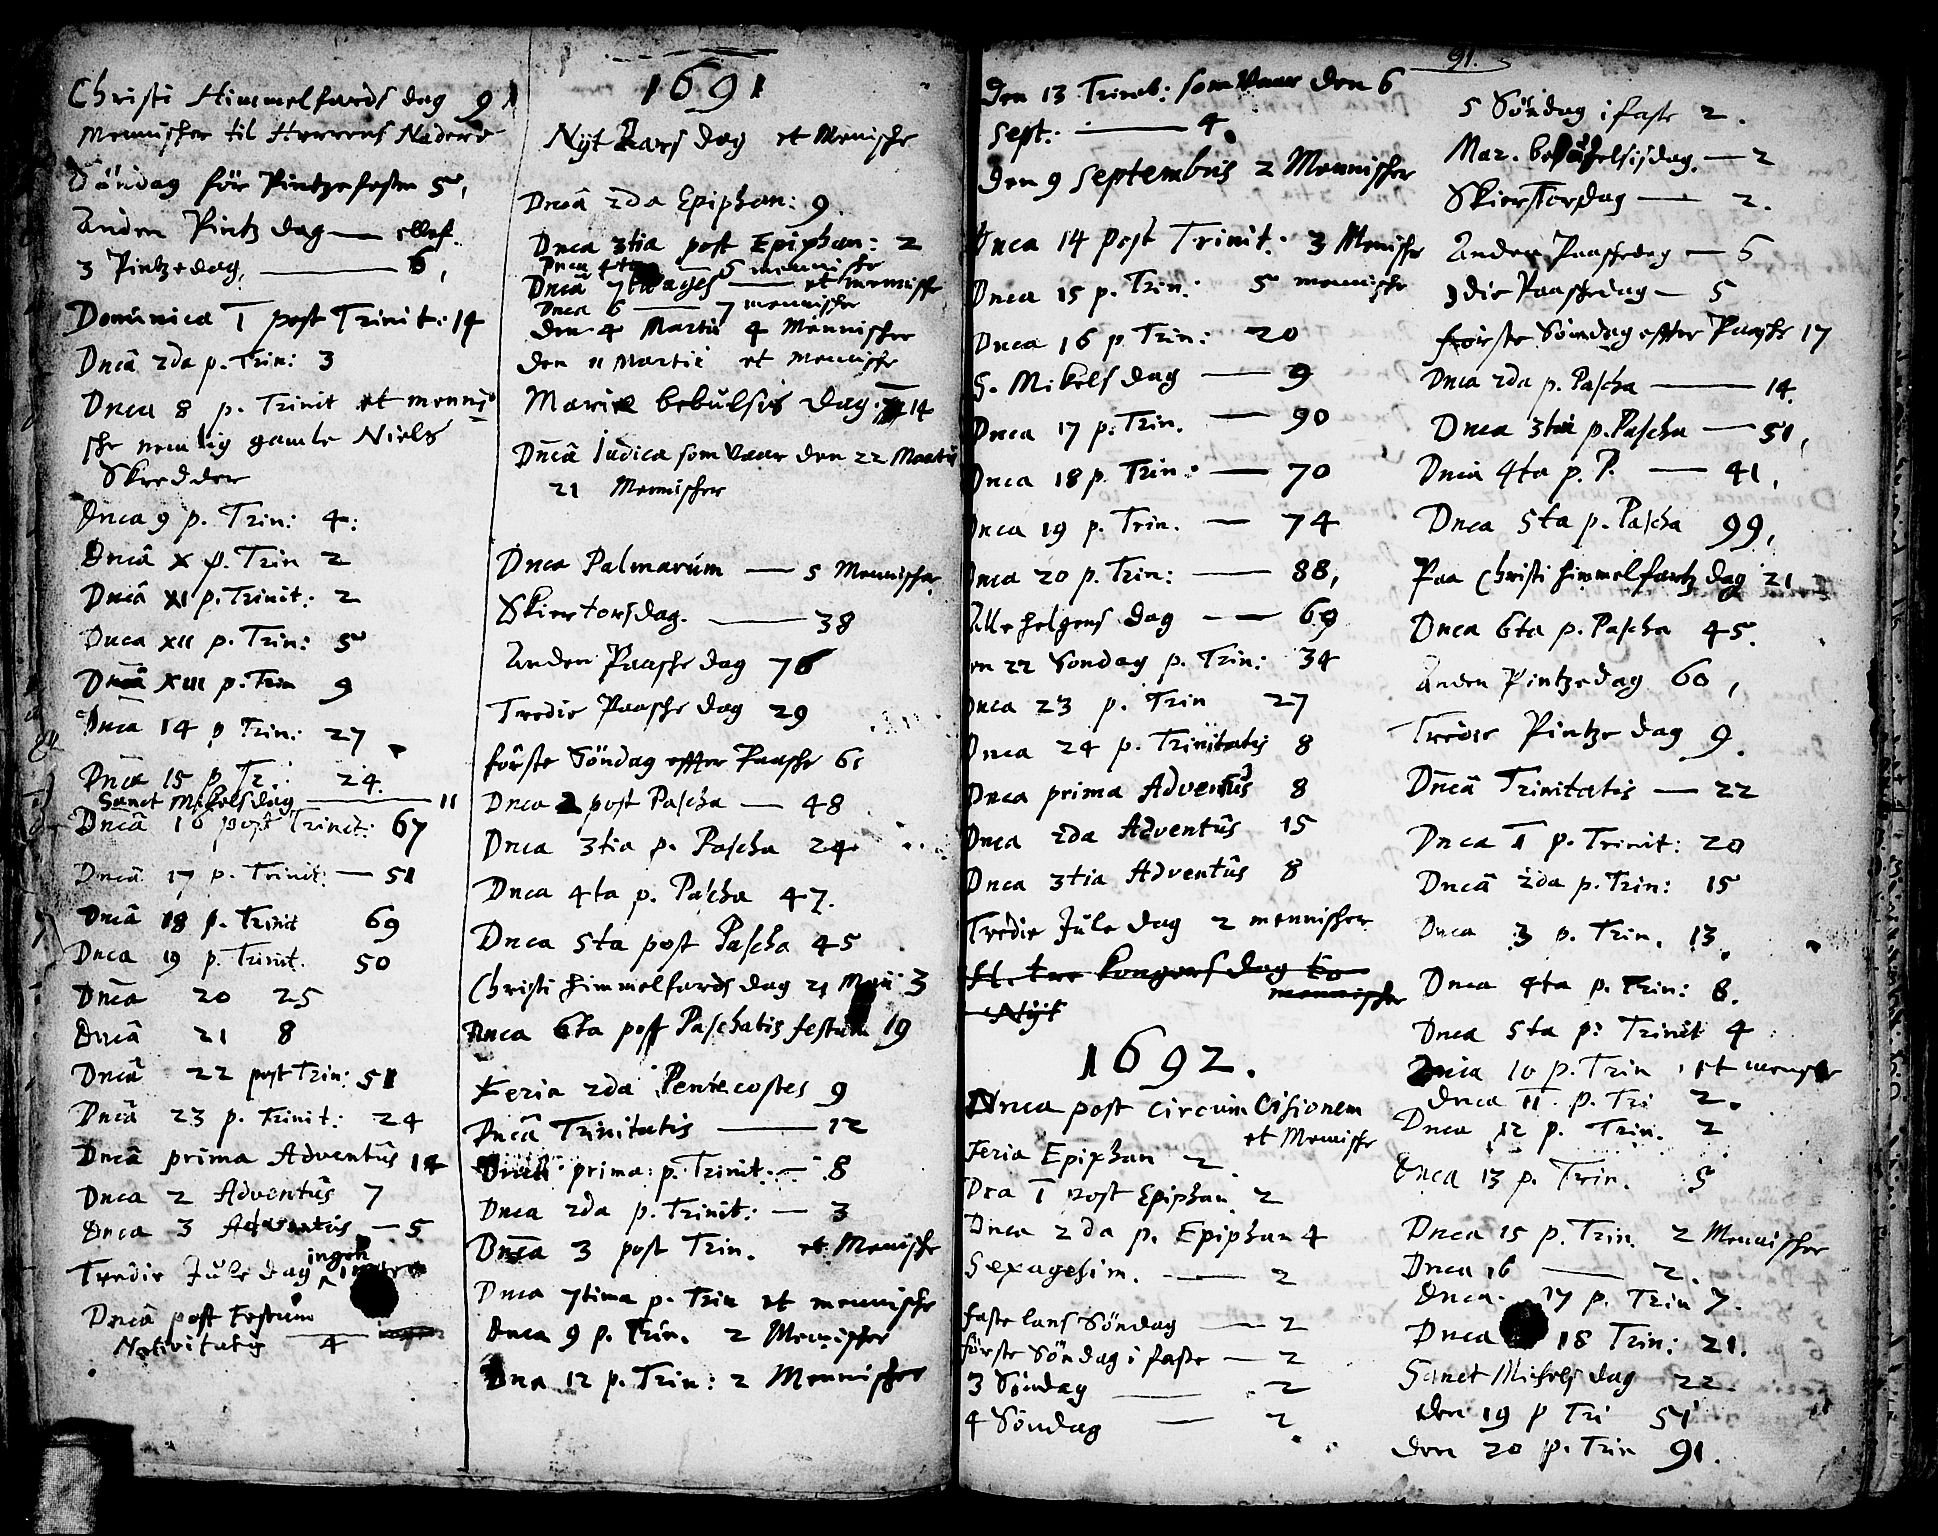 Christi Himmelfards dag 91
Mennischer til Herrens Nadere
Söndag för Pintzefesten 5,
Anden Pintz dag — ellef.
3 Pintzedag, — 6,
Dominica 1 post Trinit: 14
Dncâ 2da p. Trin: 3
Dnca 8 p. Trinit et menni
sche nemlig gamle Niels
Skredder
Dnca 9 p. Trin: 4:
Dncâ X p. Trin 2
Dncâ XI p. Trinit: 2
Dnca XII p. Trin: 5
Dncâ XIII p. Trin 9
Dncâ 14 p Trin: 27
Dncâ 15 p Tr: 24.
Sanct Mikelsdag — 11
Dncâ 16 post Trinit: 67
Dncâ 17 p. Trinit: — 51
Dncâ 18 p. Trinit 69
Dnca 19 p. Trinit. 50
Dncâ 20 25
Dncâ 21 8
Dncâ 22 post Trin: 51
Dncâ 23 p. Trinit: 24
Dncâ prima Adventûs 14
Dnca 2 Adventûs 7
Dnca 3 Adventûs — 5
Tredie Jule dag ingen
Dncâ post Festum
Nativitatis — 4
1691
Nyt Aars dag et Menische
Dncâ 2da Epiphan: 9
Dnca 3tia post Epiphan: 2
Dnca 4ta — 5 mennische
Dncâ 7tuages — et mennische
Dnca 6 — 7 mennische
den 4 Martii 4 Mennischer
den 11 Martii et Mennische
Mariæ bebulsis dag. 14
Dncâ Iudica som Vaar den 22 Martii
21 Mennischer
Dnca Palmarùm — 5 Mennischer
Skiertorsdag. — 38
Anden Paasche dag 76
Tredie Paasche dag 29
förste Söndag effter Paasche 61
Dnca 2 post Pascha — 48
Dnca 3tia p. Pascha 24
Dnca 4ta p. Pascha 47.
Dnca 5ta post Pascha 45
Christi himmelfards dag 21 Maii 3
Dnca 6ta post Paschatis festum 19
Feria 2da Pentecostes 9
Dncâ Trinitatis — 12
Dncâ prima p. Trinit: — 8
Dnca 2da p. Trinit: — 3
Dnca 3 post Trin. et Menische
Dnca 7tima p. Trin et mennische
Dnca 9 p. Trin. 2 Mennischer
Dnca 12 p. Trin: 2 Mennischer
91.
Den 13 Trinit: som Vaar den 6
Sept: — 4
den 9 Septembris 2 Mennischer
Dnca 14 post Trinit: 3 Mennische
Dnca 15 p. Trin: 5 mennische
Dnca 16 p. Trin: 20
S. Mikels dag — 9
Dnca 17 p. Trin. — 90
Dnca 18 p. Trin: — 70
Dnca 19 p. Trin. — 74
Dnca 20 p. Trin: — 88,
Alle helgens dag — 69
en 22 Söndag p. Trin: 34
Dnca 23 p. Trin 27
Dnca 24 p. Trinitatis 8
Dnca prima Adventûs 8
Dnca 2da Adventûs 15
Dnca 3tia Adventûs 8
Tredie Jule dag 2 mennischer
H. tre kongers dag to
mennischer
Nyt
1692.
Dnca post circumcisionem
et Mennische
Feria Epiphan 2
Dca 1 post Epiphan 2
Dnca 2da p. Epiphan 4
Sexagesim. — 2
faste lans Söndag — 2
förste Söndag i faste — 2
3 Söndag — 2
4 Söndag — 2
5 Söndag i faste 2.
Mar. bebudelsisdag. — 2
Skierstorsdag — 2.
Anden Paaschedag — 5
3die Paaschedag — 5
förste Söndag effter Paasche 17
Dnca 2da p. Pascha — 14.
Dnca 3tia p. Pascha — 51,
Dnca 4ta p. P. — 41,
Dnca 5ta p. Pascha 99,
Paa Christi himmelfartz dag 21
Dnca 6ta p. Pascha 45.
Anden Pintzedag 60,
Tredie Pintze dag 9.
Dncâ Trinitatis — 22
Dnca 1 p. Trinit: 20
Dncâ 2da p. Trin: 15
Dnca 3 p. Trin. 13
Dnca 4ta p. Trin: 6.
Dnca 5ta p: Trinit 4
Dnca 10 p. Trin, et mensche
Dnca 11 p. Tri 2.
Dnca 12 p. Trin. 2
Dnca 13 p. Trin. 5
Dnca 15 p. Trin. 2 Mennischer
Dnca 16 — 2.
Dnca. 17 p. Trin 7.
Dnca 18 Trin: 21.
Sanct Michels dag 22.
den 19 p Tri 51
den 20 p. Trin 91.